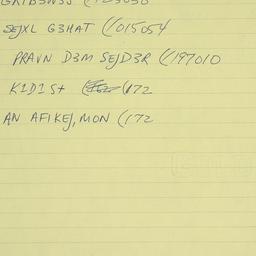 SEJXL G3HAT (/015054
PRAVN D3M SEJD3R (/197010
K1D1 St (/172
AN AFIKEJ, MON (/172